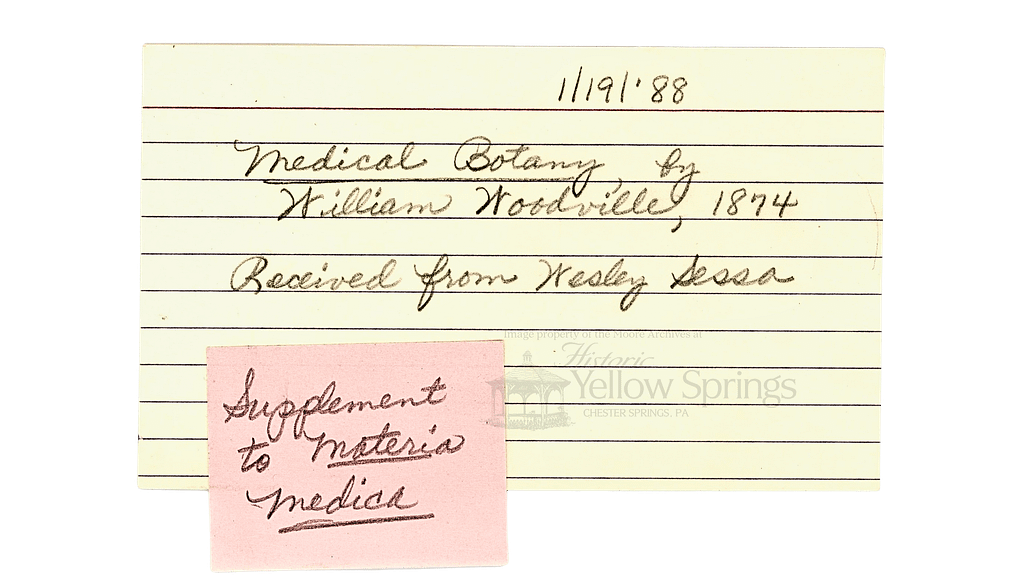 1/19/'88
Medical Botany, by
William Woodville, 1874
Received from Wesley Sessa
Image property of the Moore Archives at
Historic
Yellow Springs
CHESTER SPRINGS, PA
Supplement
to Materia
Medica